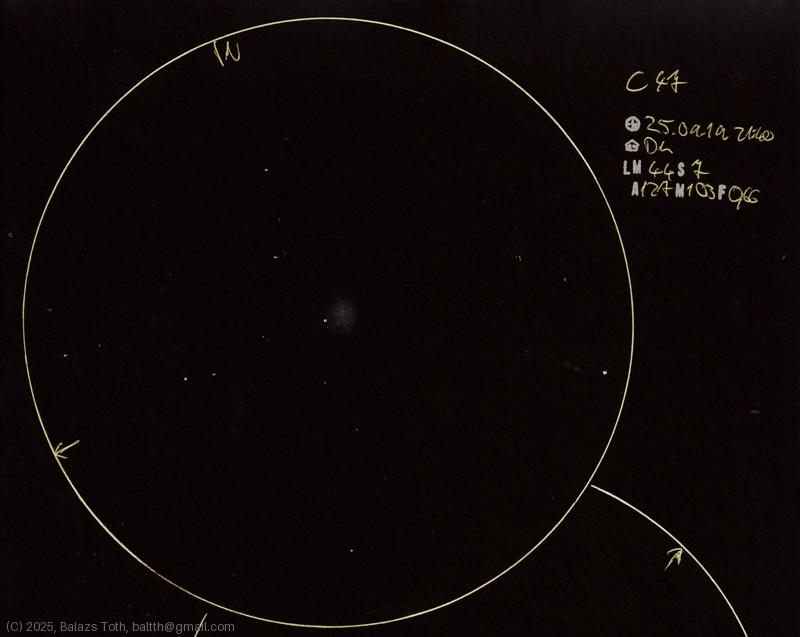 N
C 47
25.09.19
LM 44 S 7
A127 M103 F0,66
(C) 2025, Balazs Toth, baltth@gmail.com